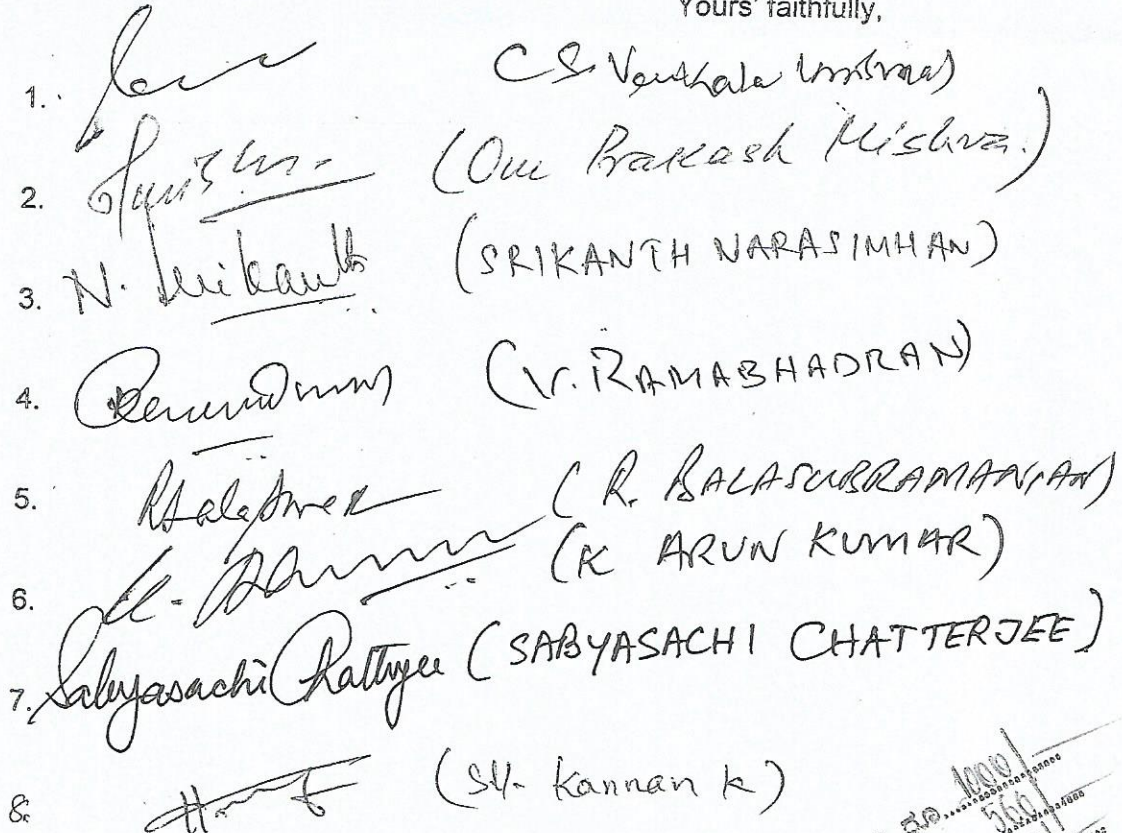 Yours' faithfully,
1. C.S.
2. (Om Prakash Mishra.)
3. N. Srikanth (SRIKANTH NARASIMHAN)
4. (V. RAMABHADRAN)
5. (R. BALASUBRAMANIAN)
6. (K ARUN KUMAR)
7. Sabyasachi Chatterjee (SABYASACHI CHATTERJEE)
8. Kannan K)
1000
560